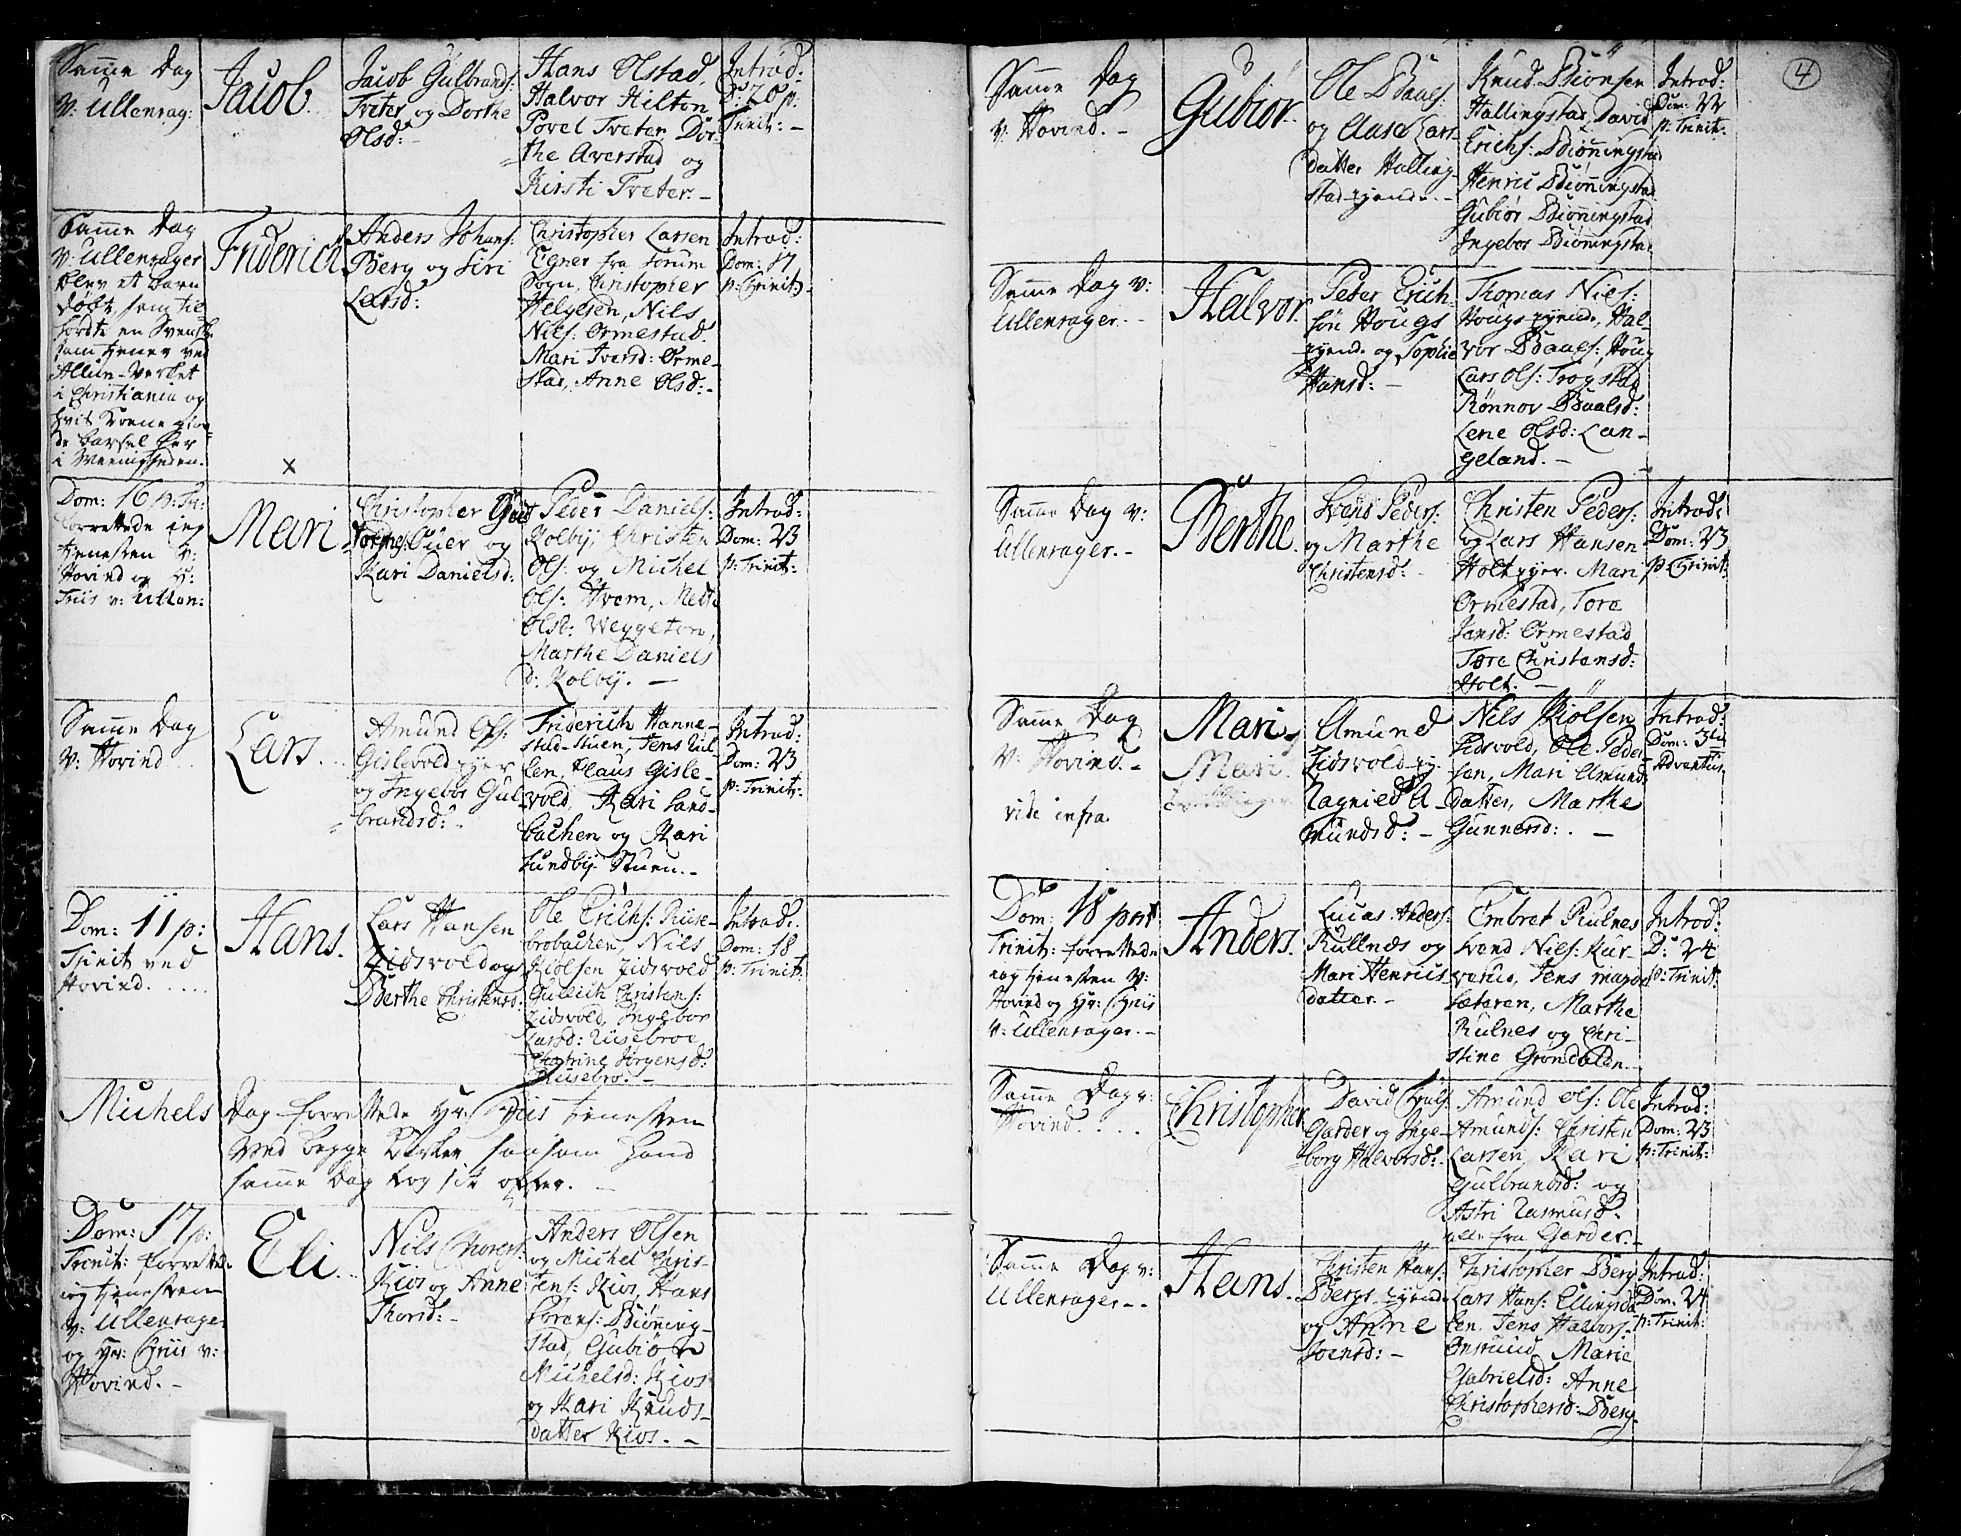 Samme Dag
v: Ullensag:
Jacob
Jacob Gulbrands:
Tveter og Dorthe
Olsd:
Hans Olstad,
Halvor Hilton
Povel Tveter, Dor-
the Averstad og
Kirsti Tveter. -
Introd:
D: 20 p:
Trinit: -
Samme Dag
v: Ullensager
blev et barn
døbt, som til-
hørdte en Svensk
som tjener ved
Allun-Verket
i Christiania og
hvis Kone giør-
de barsel her
i Meenigheden.
Friderich
x
Anders Johans:
Berg og Siri
Larsd:
Christopher Larsen
Egner fra Sørum
Sogn, Christopher
Helgesen, Nils
Nils: Ormestad.
Mari Iversd: Orme-
stad, Anne Olsd: -
Introd:
Dom: 17
p: Trinit:
Dom: 16 p: Tri:
forrettede ieg
tjenesten v:
Hovind og H:
Friis v: Ullen:
Mari
Christopher
Kari Danielsd:
Peder Daniels:
Kolby, Christen
Ols: og Michel
Ols: Hvam, Mette
Olsd: Weggeton,
Marthe Daniels
d: Kolby. -
Introd:
Dom: 23
p: Trinit:
Samme Dag
v: Hovind
Lars.
Amund Ols:
Gislevold ejer
og Ingebor Gul-
brandsd:
Friderich Hanne-
stad-stuen, Jens Jul
sen, Klaus Gisle-
vold, Kari Sand-
bachen og Kari
Sundby Stuen. -
Introd:
Dom: 23
p: Trinit:
Dom: 11 p:
Trinit ved
Hovind.
Hans.
Lars Hansen
Jidsvold og
Berthe Christensd:
Ole Erichs: Riise-
brobachen, Nils
Kiølsen Jidsvold
Gulich Christens:
Jidsvold, Ingebor
Larsd: Riisebroe
Chatrine Jørgensd:
Riisebro: -
Introd:
Dom: 18
p: Trinit:
Michels Dag forrettede Hr: Friis tjenesten
ved begge Kirker saasom hand
samme dag tog sit offer. -
Dom: 17 p:
Trinit: forrettede
ieg tjenesten
v: Ullensager
og Hr: Friis v:
Hovind. -
Eli.
Nils Thores:
Kios og Anne
Thorsd: -
Anders Olsen
og Michel Chris-
tens: Kios, Hans
Sørens: Biønning-
stad, Gubiør
Michelsd: Kios
og Kari Knuds-
datter Kios. -
4
Samme Dag
v: Hovind. -
Gubiør.
Ole Paals:
og Aase Lars-
datter Halling-
stad-ejende. -
Knud Biønsen
Hallingstad, David
Erichs: Biønningstad
Henric Biønningstad
Gubiør Biønningstad
Ingebor Biønningstad
Introd:
Dom: 22
p: Trinit:
Samme Dag v:
Ullensager. -
Halvor.
Peder Erich-
søn Hougs
ejend. og Sophie
Hansd: -
Thomas Niels:
Hougs ejende, Hal-
vor Paals: Houg
Lars Ols: Trogstad
Rønnov Paalsd:
Lene Olsd: Lan-
geland. -
Samme Dag v:
Ullensager. -
Berthe.
Svend Peders:
og Marthe
Christensd:
Christen Peders:
og Lars Hansen
Holt ejer. Mari
Ormestad, Tore
Jansd: Ormestad
Tore Christensd:
Holt. -
Introd:
Dom: 23
p: Trinit:
Samme Dag
v: Hovind. -
vide infra
Mari
Mari.
Amund
Jidsvold ej-
Ragnild A-
mundsd: -
Nils Kiølsen
Jidsvold, Ole Peder
sen, Mari Amunds
datter, Marthe
Gunnersd: -
Introd:
Dom: 3tia
Adventus
Dom: 18 post
Trinit: forrettede
ieg tjenesten v:
Hovind og Hr: Friis
v: Ullensager. -
Anders.
Lucas Anders:
Kullnes og
Mari Henrics-
datter. -
Embret Kulnes
Svend Nils: Kur-
Jens
sæteren, Marthe
Kulnes og Chri-
stine Grøndalen.
Introd:
D: 24
p: Trinit:
Samme Dag v:
Hovind.
Christopher
David
Garder og Inge-
borg Halvorsd:
Amund Ols: Ole
Amunds: Christen
Larsen, Kari
Gulbrandsd: og
Astri Rasmusd.
alle fra Garder. -
Introd:
Dom: 23
p: Trinit:
Samme Dag v:
Ullensager -
Hans.
Christen Hans:
Bergs ejende
og Anne
Svensd: -
Christopher Berg
Lars Hans: Ellingsda
len. Jens Halvors-
Marie
Gabrielsd: Anne
Christophersd: Berg.
Introd:
Dom: 24
p: Trinit: